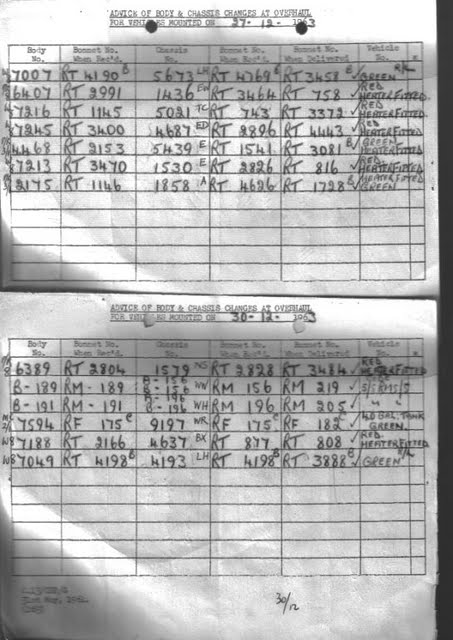 ADVICE OF BODY & CHASSIS CHANGES AT OVERHAUL
FOR VEHICLES MOUNTED ON 27-12-1963
Body No. Bonnet No. When Rec'd. Chassis No. Bonnet No. When Rec'd. Bonnet No. When Delivered Vehicle No. *
7007 RT 4190 B 5673 LH RT 4769 B RT 3458 B ✓ GREEN R/L
6407 RT 2991 1436 EW RT 3464 RT 758 ✓ RED HEATER FITTED
7216 RT 1145 5021 TC RT 743 RT 3372 ✓ RED HEATER FITTED
7245 RT 3400 4687 ED RT 2896 RT 4443 ✓ RED HEATER FITTED
4468 RT 2153 5439 E RT 1541 RT 3081 B ✓ GREEN HEATER FITTED
7213 RT 3470 1530 E RT 2826 RT 816 ✓ RED HEATER FITTED
2175 RT 1146 1858 A RT 4626 RT 1728 B ✓ HEATER FITTED GREEN
ADVICE OF BODY & CHASSIS CHANGES AT OVERHAUL
FOR VEHICLES MOUNTED ON 30-12-1963
Body No. Bonnet No. When Rec'd. Chassis No. Bonnet No. When Rec'd. Bonnet No. When Delivered Vehicle No. *
6389 RT 2804 1579 NS RT 2828 RT 3484 ✓ RED HEATER FITTED
B-189 RM-189 B-156 B-156 WV RM 156 RM 219 ✓
B-191 RM-191 B-196 B-196 WH RM 196 RM 205 ✓ " "
7594 RF 175 C 9197 WR RF 175 C RF 182 C ✓ 40 GAL. TANK GREEN
W8 7188 RT 2166 4637 BX RT 877 RT 808 ✓ RED HEATER FITTED
W8 7049 RT 4198 B 4193 LH RT 4198 B RT 3888 B ✓ GREEN R/L
31st May, 1961.
30/12